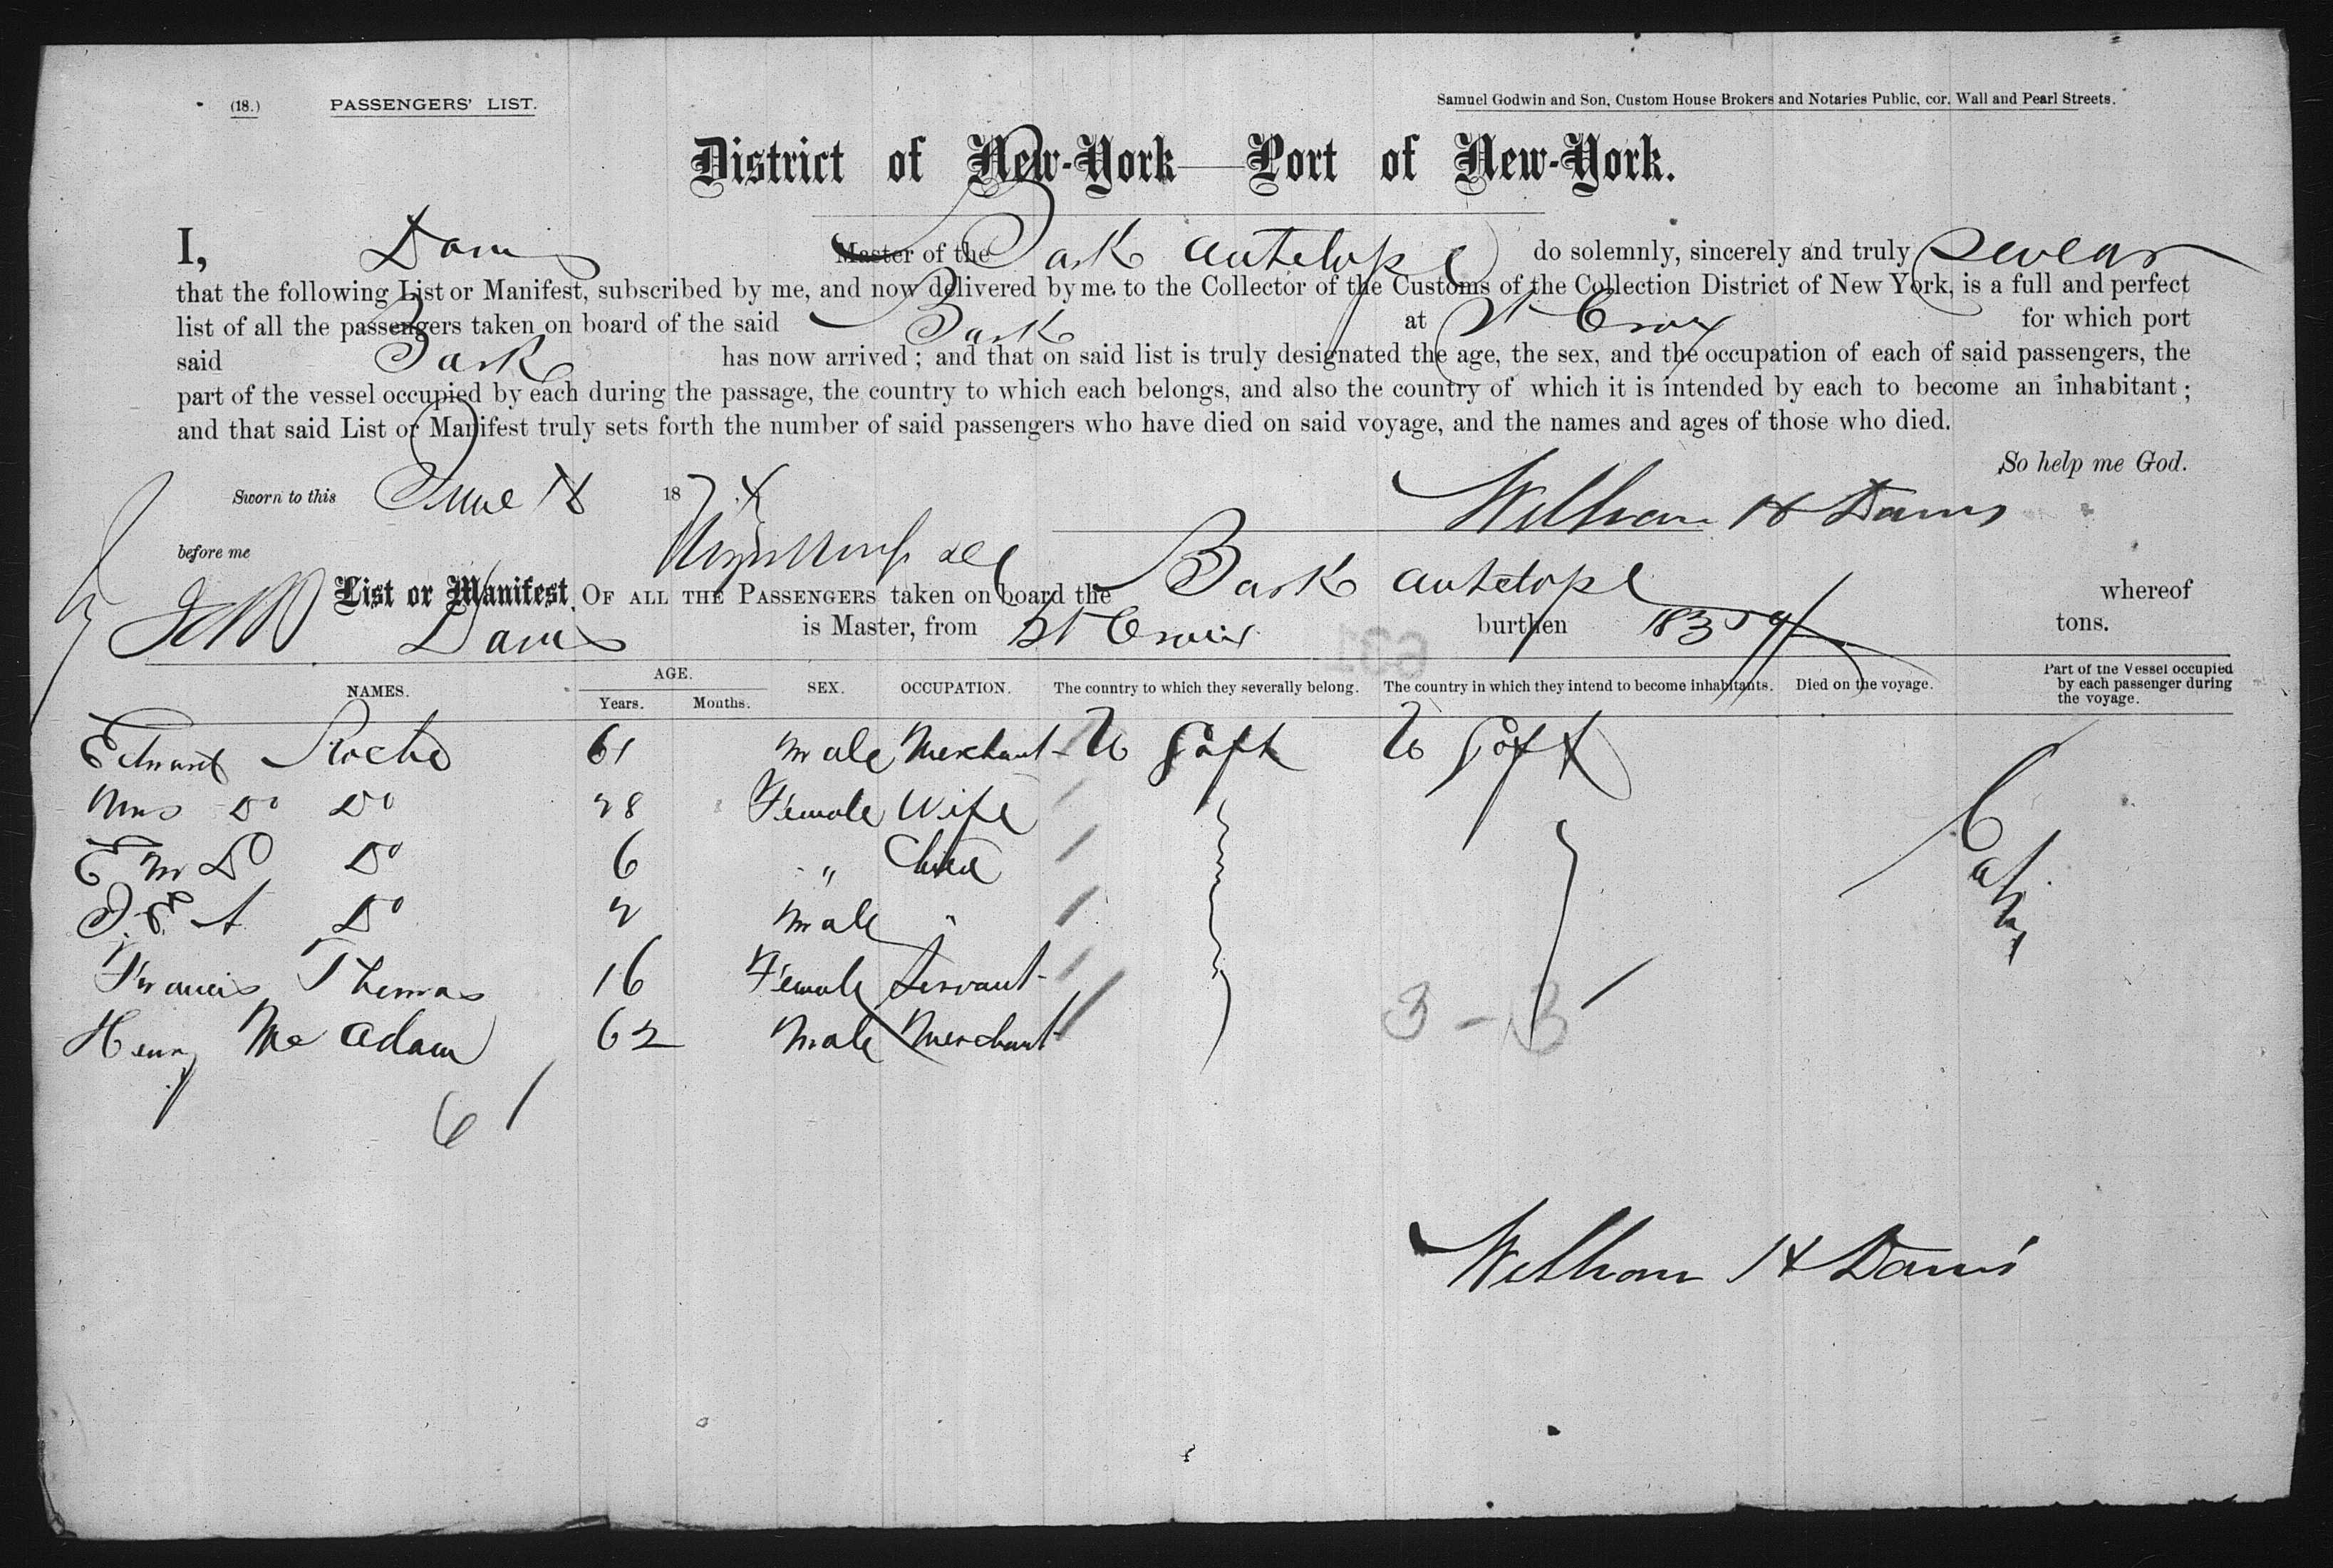 (18.) PASSENGERS' LIST. Samuel Godwin and Son, Custom House Brokers and Notaries Public, cor. Wall and Pearl Streets.
District of New-York—Port of New-York.
I, Davis Master of the Bark Antelope do solemnly, sincerely and truly swear
that the following List or Manifest, subscribed by me, and now delivered by me to the Collector of the Customs of the Collection District of New York, is a full and perfect
list of all the passengers taken on board of the said Bark at St Croix for which port
said Bark has now arrived; and that on said list is truly designated the age, the sex, and the occupation of each of said passengers, the
part of the vessel occupied by each during the passage, the country to which each belongs, and also the country of which it is intended by each to become an inhabitant;
and that said List or Manifest truly sets forth the number of said passengers who have died on said voyage, and the names and ages of those who died.
So help me God.
Sworn to this June 18 187 William H Davis
before me
List or Manifest, OF ALL THE PASSENGERS taken on board the Bark Antelope whereof
Davis is Master, from St Croix burthen tons.
NAMES. AGE. Years. Months. SEX. OCCUPATION. The country to which they severally belong. The country in which they intend to become inhabitants. Died on the voyage. Part of the Vessel occupied by each passenger during the voyage.
Edward Roche 61 male Merchant
Mrs Do Do 28 Female Wife
E M Do Do 6 " Child
Do 2 male "
Francis Thomas 16 Female Servant
Henry McAdam 62 Male Merchant
Cabin
3 - 3
6
William H Davis